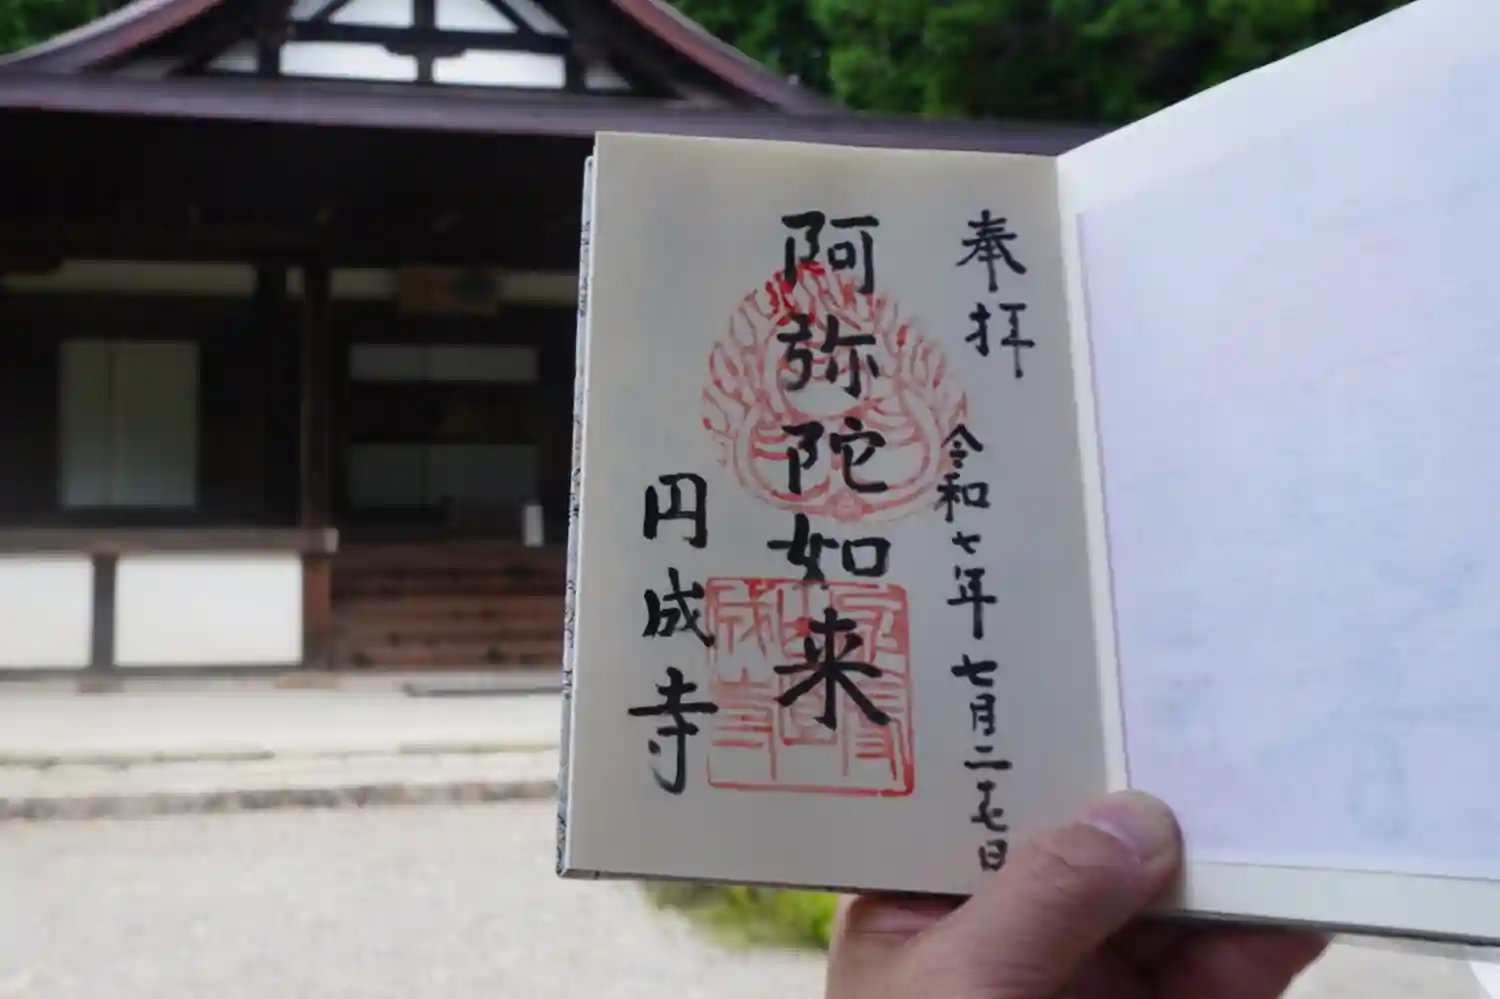 奉拝
令和七年七月二十七日
阿弥陀如来
円成寺